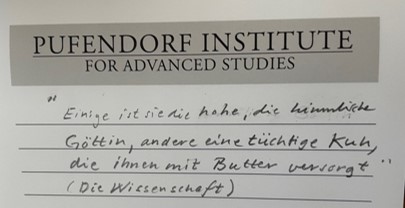 PUFENDORF INSTITUTE
FOR ADVANCED STUDIES
"Einige ist sie die hohe, die himmlische
Göttin, andere eine tüchtige Kuh,
die ihnen mit Butter versorgt"
(Die Wissenschaft)